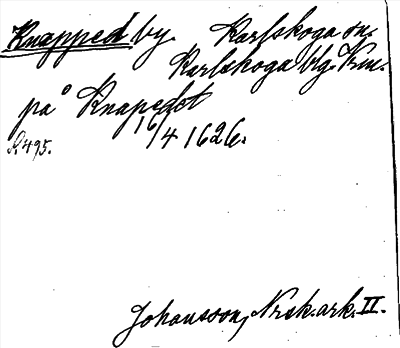 Knapped by. Karlskoga sn.
Karlskoga blg. Vrm.
på Knapedet
16/4 1626.
S. 495.
Johansson, Nrsk. ark. II.